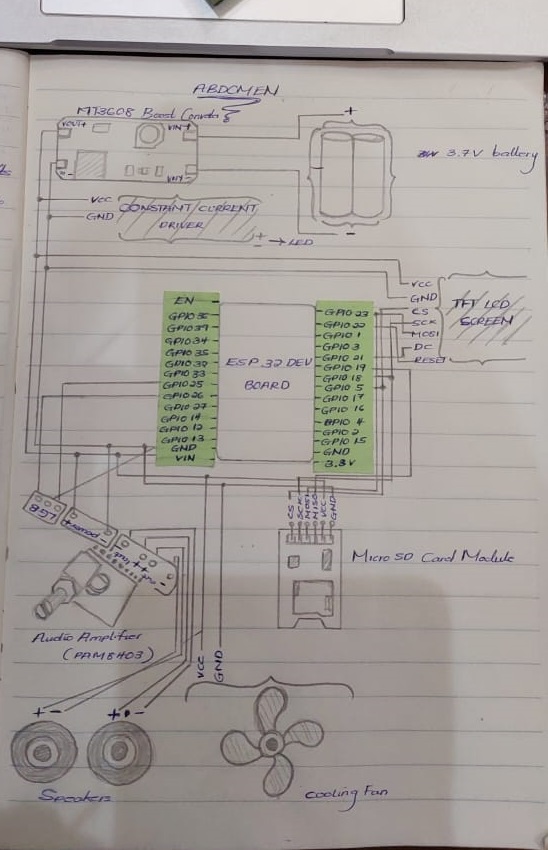 ABDOMEN
MT3608 Boost Converter
VOUT+
VIN+
VIN-
-
+
-
3.7V battery
VCC
GND
CONSTANT/CURRENT
DRIVER
+
- → LED
VCC
GND
CS
SCK
MOSI
DC
RESET
TFT LCD
SCREEN
EN
GPIO 36
GPIO 39
GPIO 34
GPIO 35
GPIO 32
GPIO 33
GPIO 25
GPIO 26
GPIO 27
GPIO 14
GPIO 12
GPIO 13
GND
VIN
ESP 32 DEV
BOARD
GPIO 23
GPIO 22
GPIO 1
GPIO 3
GPIO 21
GPIO 19
GPIO 18
GPIO 5
GPIO 17
GPIO 16
GPIO 4
GPIO 2
GPIO 15
GND
3.3V
CS
SCK
MOSI
MISO
VCC
GND
Micro SD Card Module
Power
Audio Amplifier
(PAM8403)
VCC
GND
+ -
+ -
Speakers
Cooling Fan